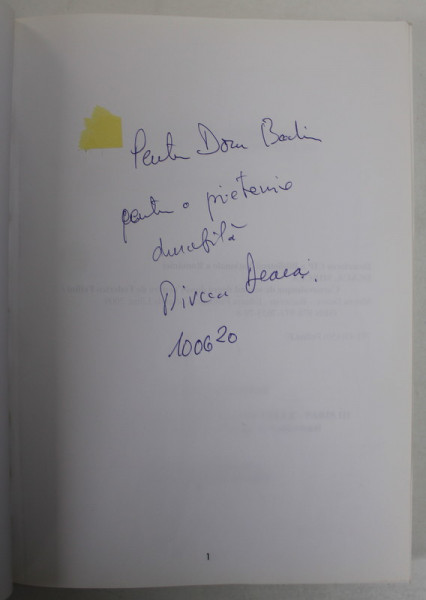 Pentru Doru Badin
pentru o prietenie
durabilă
Mircea
100620
1